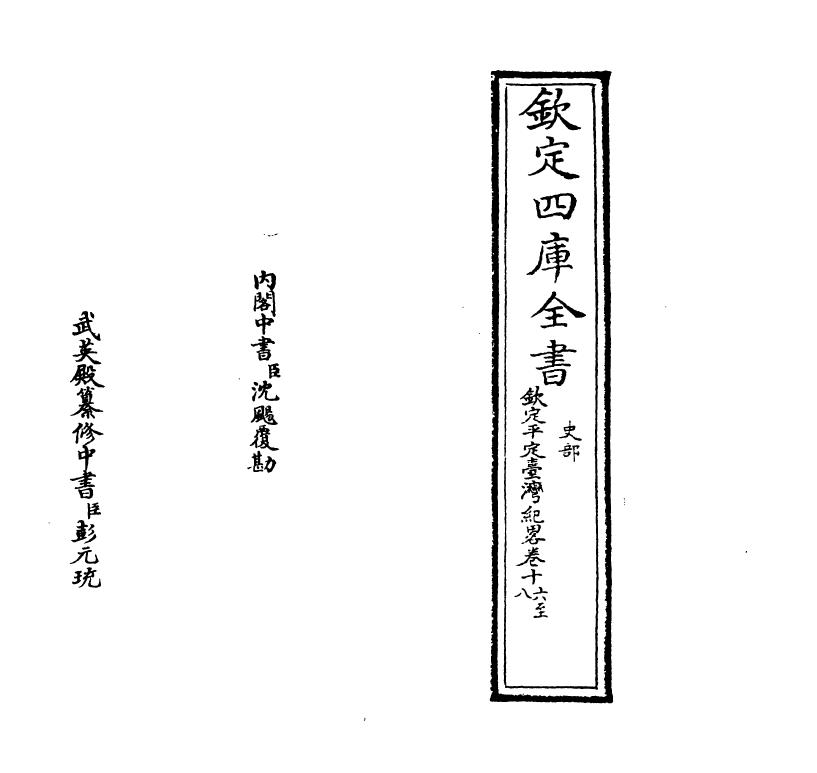 欽定四庫全書
史部
欽定平定臺灣紀畧卷十六至十八
內閣中書臣沈颺覆勘
武英殿纂修中書臣彭元珫